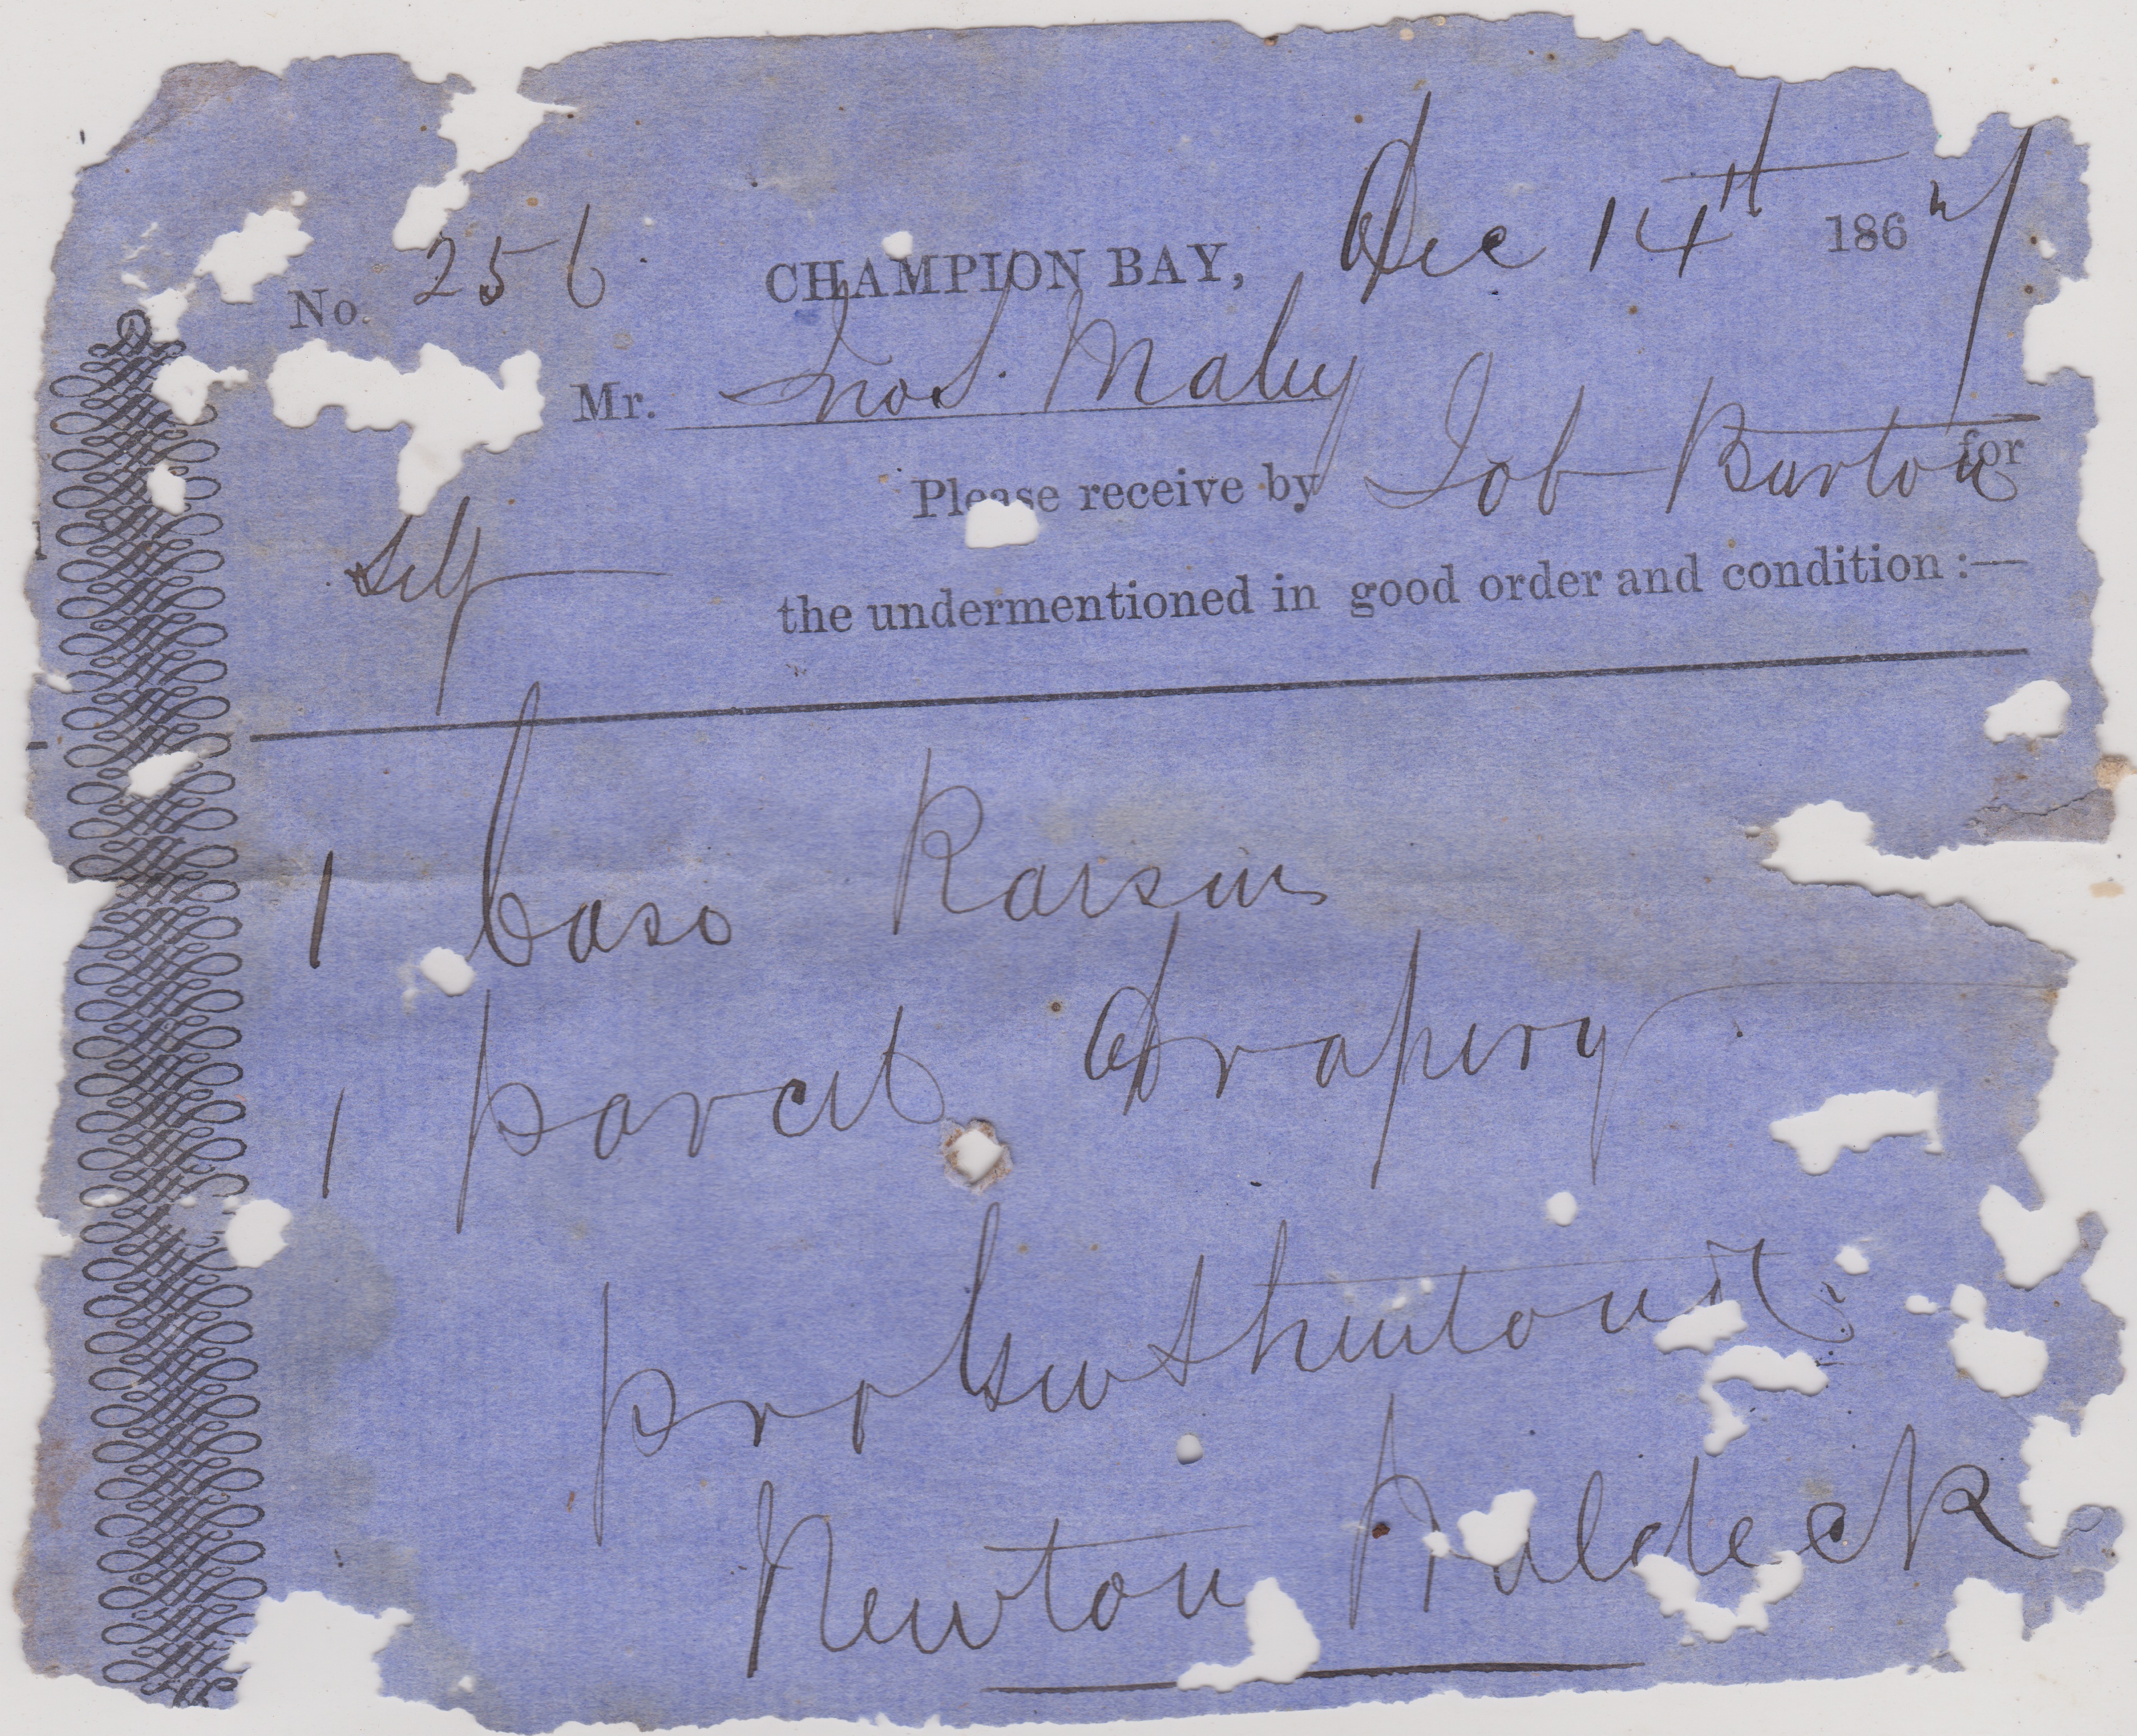 No. 256 CHAMPION BAY, Dec 14th 1867
Mr. Jno S. Maley
Please receive by Job Burton for
Self
the undermentioned in good order and condition :—
1 Case Raisins
1 parcel Drapery
pro Geo Shenton
Newton Waldeck